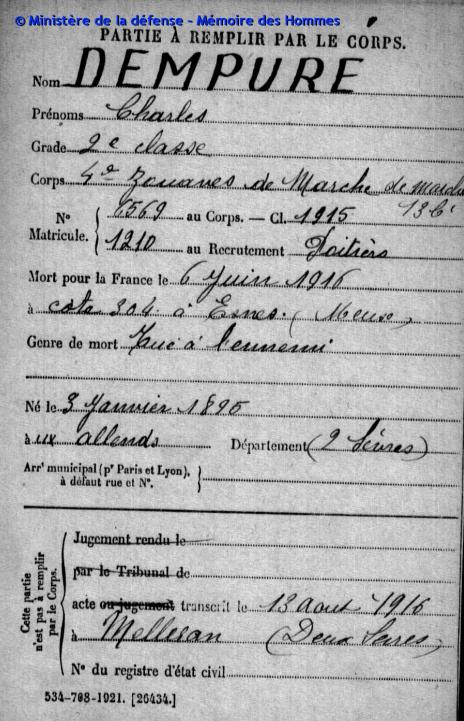 © Ministère de la défense - Mémoire des Hommes
PARTIE À REMPLIR PAR LE CORPS.
Nom DEMPURE
Prénoms Charles
Grade 2e classe
Corps 4e Zouaves de Marche de marche
13 Cie
N° Matricule. 6569 au Corps. — Cl. 1915
1210 au Recrutement Poitiers
Mort pour la France le 6 Juin 1916
à cote 304 à Esnes. (Meuse)
Genre de mort Tué à l'ennemi
Né le 3 Janvier 1895
à ux allends Département (2 Sèvres)
Arrt municipal (pr Paris et Lyon),
à défaut rue et N°.
Cette partie n'est pas à remplir par le Corps.
Jugement rendu le
par le Tribunal de
acte ou jugement transcrit le 13 aout 1916
à Melleran (Deux Sevres)
N° du registre d'état civil
534-708-1921. [26434.]